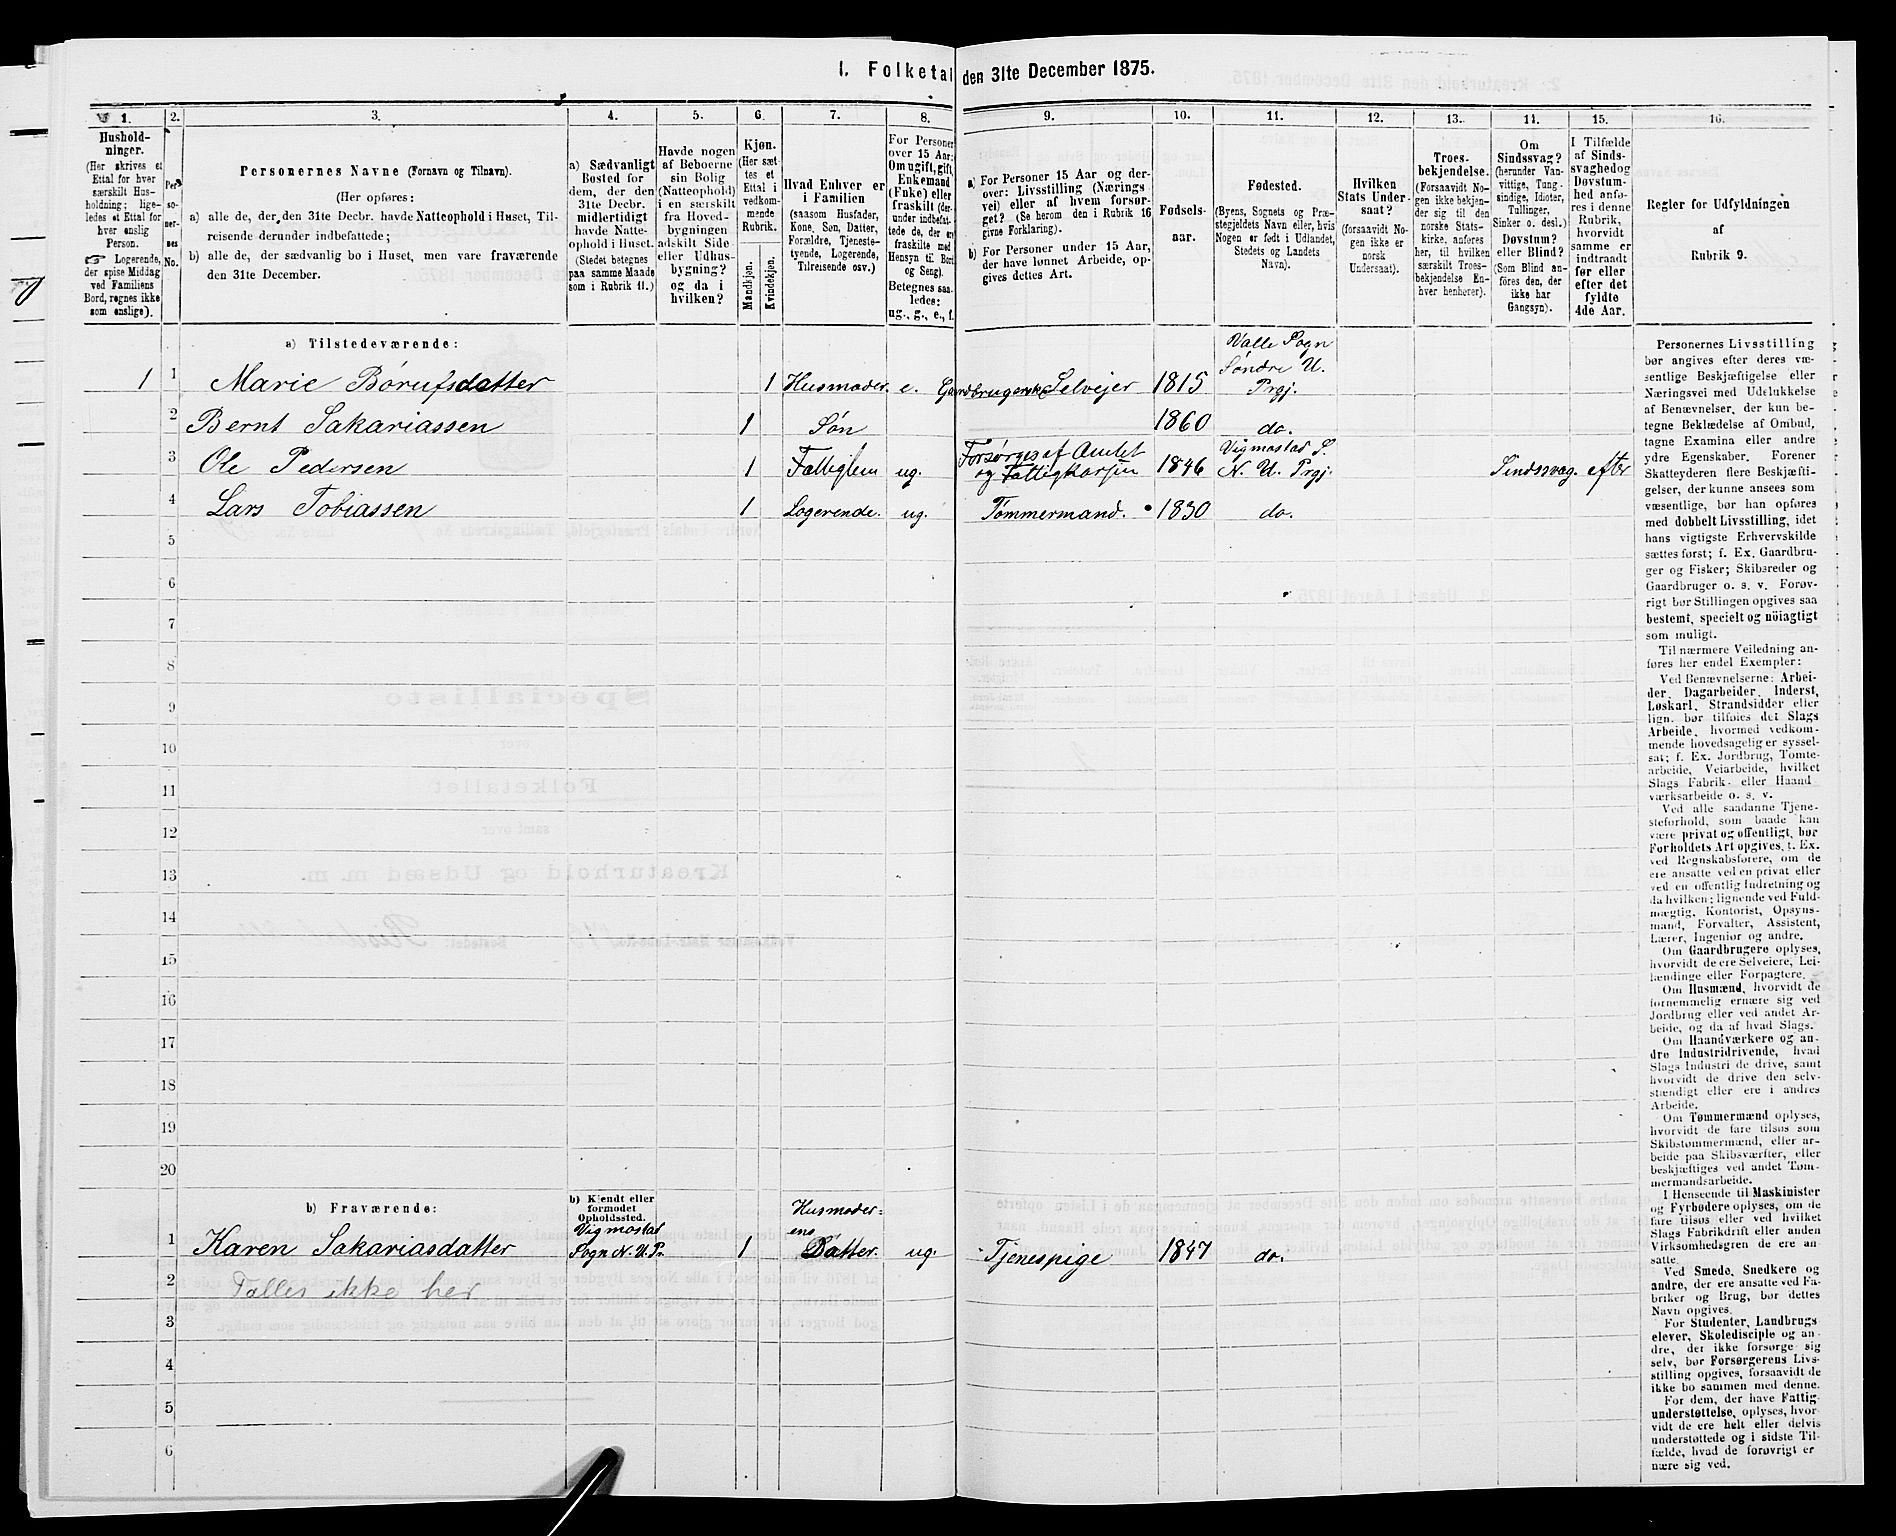 I. Folketal den 31te December 1875.
1. 2. 3. 4. 5. 6. 7. 8. 9. 10. 11. 12. 13. 14. 15. 16.
Hushold-
ninger.
(Her skrives et
Ettal for hver
særskilt Hus-
holdning; lige-
ledes et Ettal for
hver enslig
Person.
☞ Logerende,
der spise Middag
ved Familiens
Bord, regnes ikke
som enslige).
Per
so-
ner-
nes
No.
Personernes Navne (Fornavn og Tilnavn).
(Her opføres:
a) alle de, der den 31te Decbr. havde Natteophold i Huset, Til-
reisende derunder indbefattede;
b) alle de, der sædvanlig bo i Huset, men vare fraværende
den 31te December.
a) Sædvanligt
Bosted for
dem, der den
31te Decbr.
midlertidigt
havde Natte-
ophold i Huset.
(Stedet betegnes
paa samme Maade
som i Rubrik 11.)
Havde nogen
af Beboerne
sin Bolig
(Natteophold)
i en særskilt
fra Hoved-
bygningen
adskilt Side
eller Udhus-
bygning?
og da i
hvilken?
Kjøn.
(Her sæt-
tes et
Ettal i
vedkom-
mende
Rubrik.
Mandkjøn.
Kvindekjøn.
Hvad Enhver er
i Familien
(saasom Husfader,
Kone, Søn, Datter,
Forældre, Tjeneste-
tyende, Logerende,
Tilreisende osv.)
For Personer
over 15 Aar:
Om ugift, gift,
Enkemand
(Enke) eller
fraskilt (der-
under indbefat-
tede de, der ere
fraskilte med
Hensyn til Bord
og Seng).
Betegnes saa-
ledes:
ug., g., e., f.
a) For Personer 15 Aar og der-
over: Livsstilling (Nærings
vei) eller af hvem forsør-
get? (Se herom den i Rubrik 16
givne Forklaring).
b) For Personer under 15 Aar,
der have lønnet Arbeide, op-
gives dettes Art.
Fødsels-
aar.
Fødested.
(Byens, Sognets og Præ-
stegjeldets Navn eller, hvis
Nogen er født i Udlandet,
Stedets og Landets
Navn).
Hvilken
Stats Under-
saat?
(forsaavidt No-
gen ikke er
norsk
Undersaat).
Troes-
bekjendelse.
(Forsaavidt No-
gen ikke bekjen-
der sig til den
norske Stats-
kirke, anføres
her, til hvilken
særskilt Troes-
bekjendelse En-
hver henhører).
Om
Sindssvag?
(herunder Van-
vittige, Tung-
sindige, Idioter,
Tullinger,
Sinker o. desl.)
Døvstum?
eller Blind?
(Som Blind an-
føres den, der
ikke har
Gangsyn).
I Tilfælde
af Sinds-
svaghed og
Døvstum-
hed anfø-
res i denne
Rubrik,
hvorvidt
samme er
indtraadt
før eller
efter det
fyldte
4de Aar.
Regler for Udfyldningen
af
Rubrik 9.
a) Tilstedeværende:
Valle Sogn
Søndre U.
1 1 Marie Børufsdatter 1 Husmoder. e. Gaardbrugerske Selvejer 1815 Prgj.
2 Bernt Sakariassen 1 Søn 1860 do.
Forsørges af Amtet Vigmostad S.
3 Ole Pedersen 1 Fattiglem ug. og Fattigkassen 1846 N. U. Prgj. Sindssvag. efter
4 Lars Tobiassen 1 Logerende. ug. Tømmermand. 1830 do.
5
6
7
8
9
10
11
12
13
14
15
16
17
18
19
20
b) Fraværende:
b) Kjendt eller
formodet
Opholdssted.
Vigmostad
Husmoder-
ens
1 Karen Sakariasdatter Sogn N. U. Pr. 1 Datter. ug. Tjenespige 1847 do.
2 Tælles ikke her
3
4
5
6
Personernes Livsstilling
bør angives efter deres væ-
sentlige Beskjæftigelse eller
Næringsvei med Udelukkelse
af Benævnelser, der kun be-
tegne Beklædelse af Ombud,
tagne Examina eller andre
ydre Egenskaber. Forener
Skatteyderen flere Beskjæfti-
gelser, der kunne ansees som
væsentlige, bør han opføres
med dobbelt Livsstilling, idet
hans vigtigste Erhvervskilde
sættes først; f. Ex. Gaardbru-
ger og Fisker; Skibsreder og
Gaardbruger o. s. v. Forøv-
rigt bør Stillingen opgives saa
bestemt, specielt og nøiagtigt
som muligt.
Til nærmere Veiledning an-
føres her endel Exempler:
Ved Benævnelserne: Arbei-
der, Dagarbeider, Inderst,
Løskarl, Strandsidder eller
lign. bør tilføies det Slags
Arbeide, hvormed vedkom-
mende hovedsagelig er syssel-
sat; f. Ex. Jordbrug, Tomte-
arbeide, Veiarbeide, hvilket
Slags Fabrik- eller Haand
værksarbeide o. s. v.
Ved alle saadanne Tjene-
steforhold, som baade kan
være privat og offentligt, bør
Forholdets Art opgives, f. Ex.
ved Regnskabsførere, om de
ere ansatte ved en privat eller
ved en offentlig Indretning og
da hvilken; lignende ved Fuld-
mægtig, Kontorist, Opsyns-
mand, Forvalter, Assistent,
Lærer, Ingeniør og andre.
Om Gaardbrugere oplyses,
hvorvidt de ere Selveiere, Lei-
lændinge eller Forpagtere.
Om Husmænd, hvorvidt de
fornemmelig ernære sig ved
Jordbrug eller ved andet Ar-
beide, og da af hvad Slags.
Om Haandværkere og an-
dre Industridrivende, hvad
Slags Industri de drive, samt
hvorvidt de drive den selv-
stændigt eller ere i andres
Arbeide.
Om Tømmermænd oplyses,
hvorvidt de fare tilsøs som
Skibstømmermænd, eller ar-
beide paa Skibsværfter, eller
beskjæftiges ved andet Tøm-
mermandsarbeide.
I Henseende til Maskinister
og Fyrbødere oplyses, om de
fare tilsøs eller ved hvilket
Slags Fabrikdrift eller anden
Virksomhedsgren de ere an-
satte.
Ved Smede, Snedkere og
andre, der ere ansatte ved Fa-
briker og Brug, bør dettes
Navn opgives.
For Studenter, Landbrugs
elever, Skoledisciple og an-
dre, der ikke forsørge sig
selv, bør Forsørgerens Livs-
stilling opgives, forsaavidt de
ikke bo sammen med denne.
For dem, der have Fattig-
understøttelse, oplyses, hvor-
vidt de ere helt eller delvis
understøttede og i sidste Til-
fælde, hvad de forøvrigt er
nære sig ved.